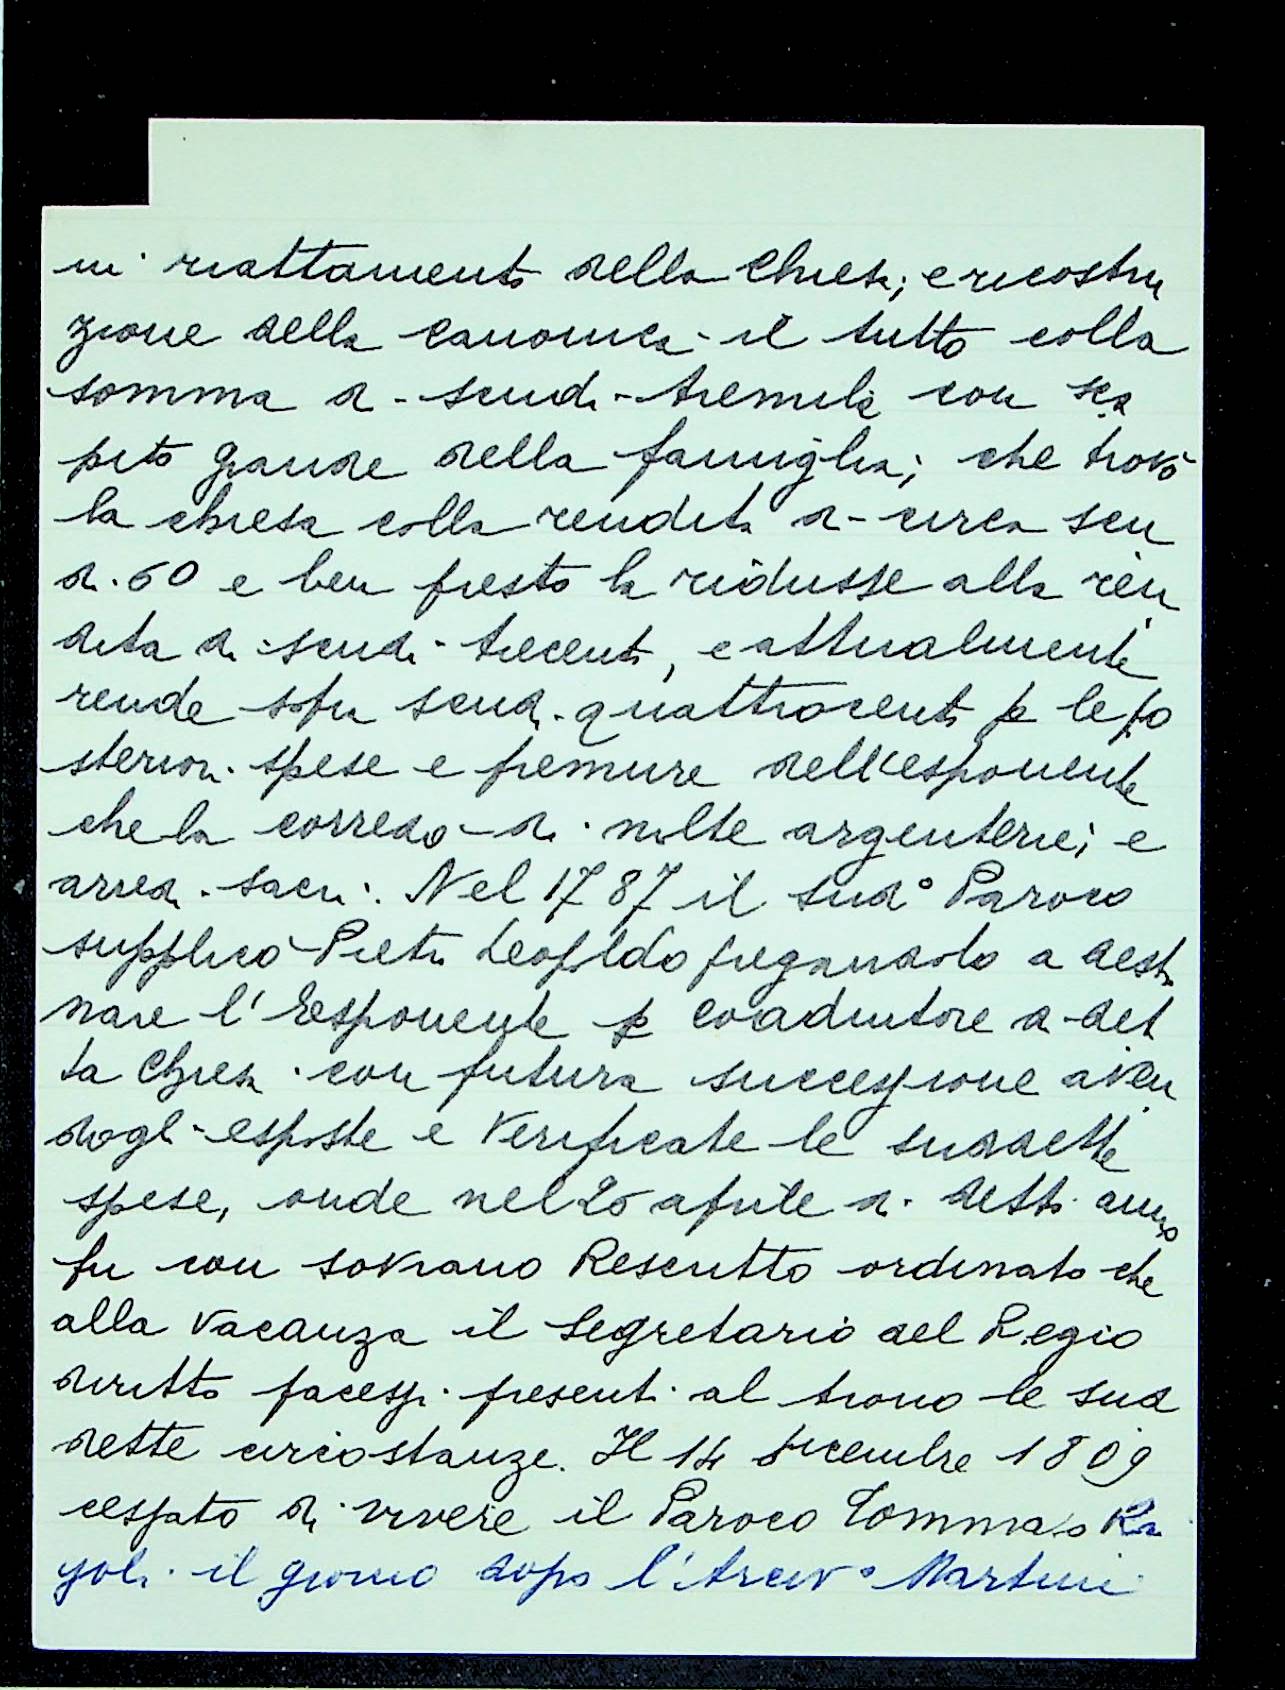 in riattamento della Chiesa; e ricostru
zione della canonica - il tutto colla
somma di scudi tremila con sca
pito grande della famiglia; che trovò
la chiesa colla rendita di circa scu
di 60 e ben presto la ridusse alla ren
dita di scudi trecenti, e attualmente
rende sopra scudi quattrocenti p le po
steriori spese e premure dell'esponente
che la corredò di molte argenterie; e
arredi sacri. Nel 1787 il sud° Paroco
supplicò Pietro Leopoldo pregandolo a desti
nare l'Esponente p coadiutore di det
ta Chiesa con futura successione aven
dogli esposte e verificate le suddette
spese, onde nel 20 aprile di detto anno
fu con sovrano Rescritto ordinato che
alla vacanza il Segretario del Regio
diritto facessi presenti al trono le sud
dette circostanze. Il 14 dicembre 1809
cessato di vivere il Paroco Tommaso
il giorno dopo l'Arciv° Martini